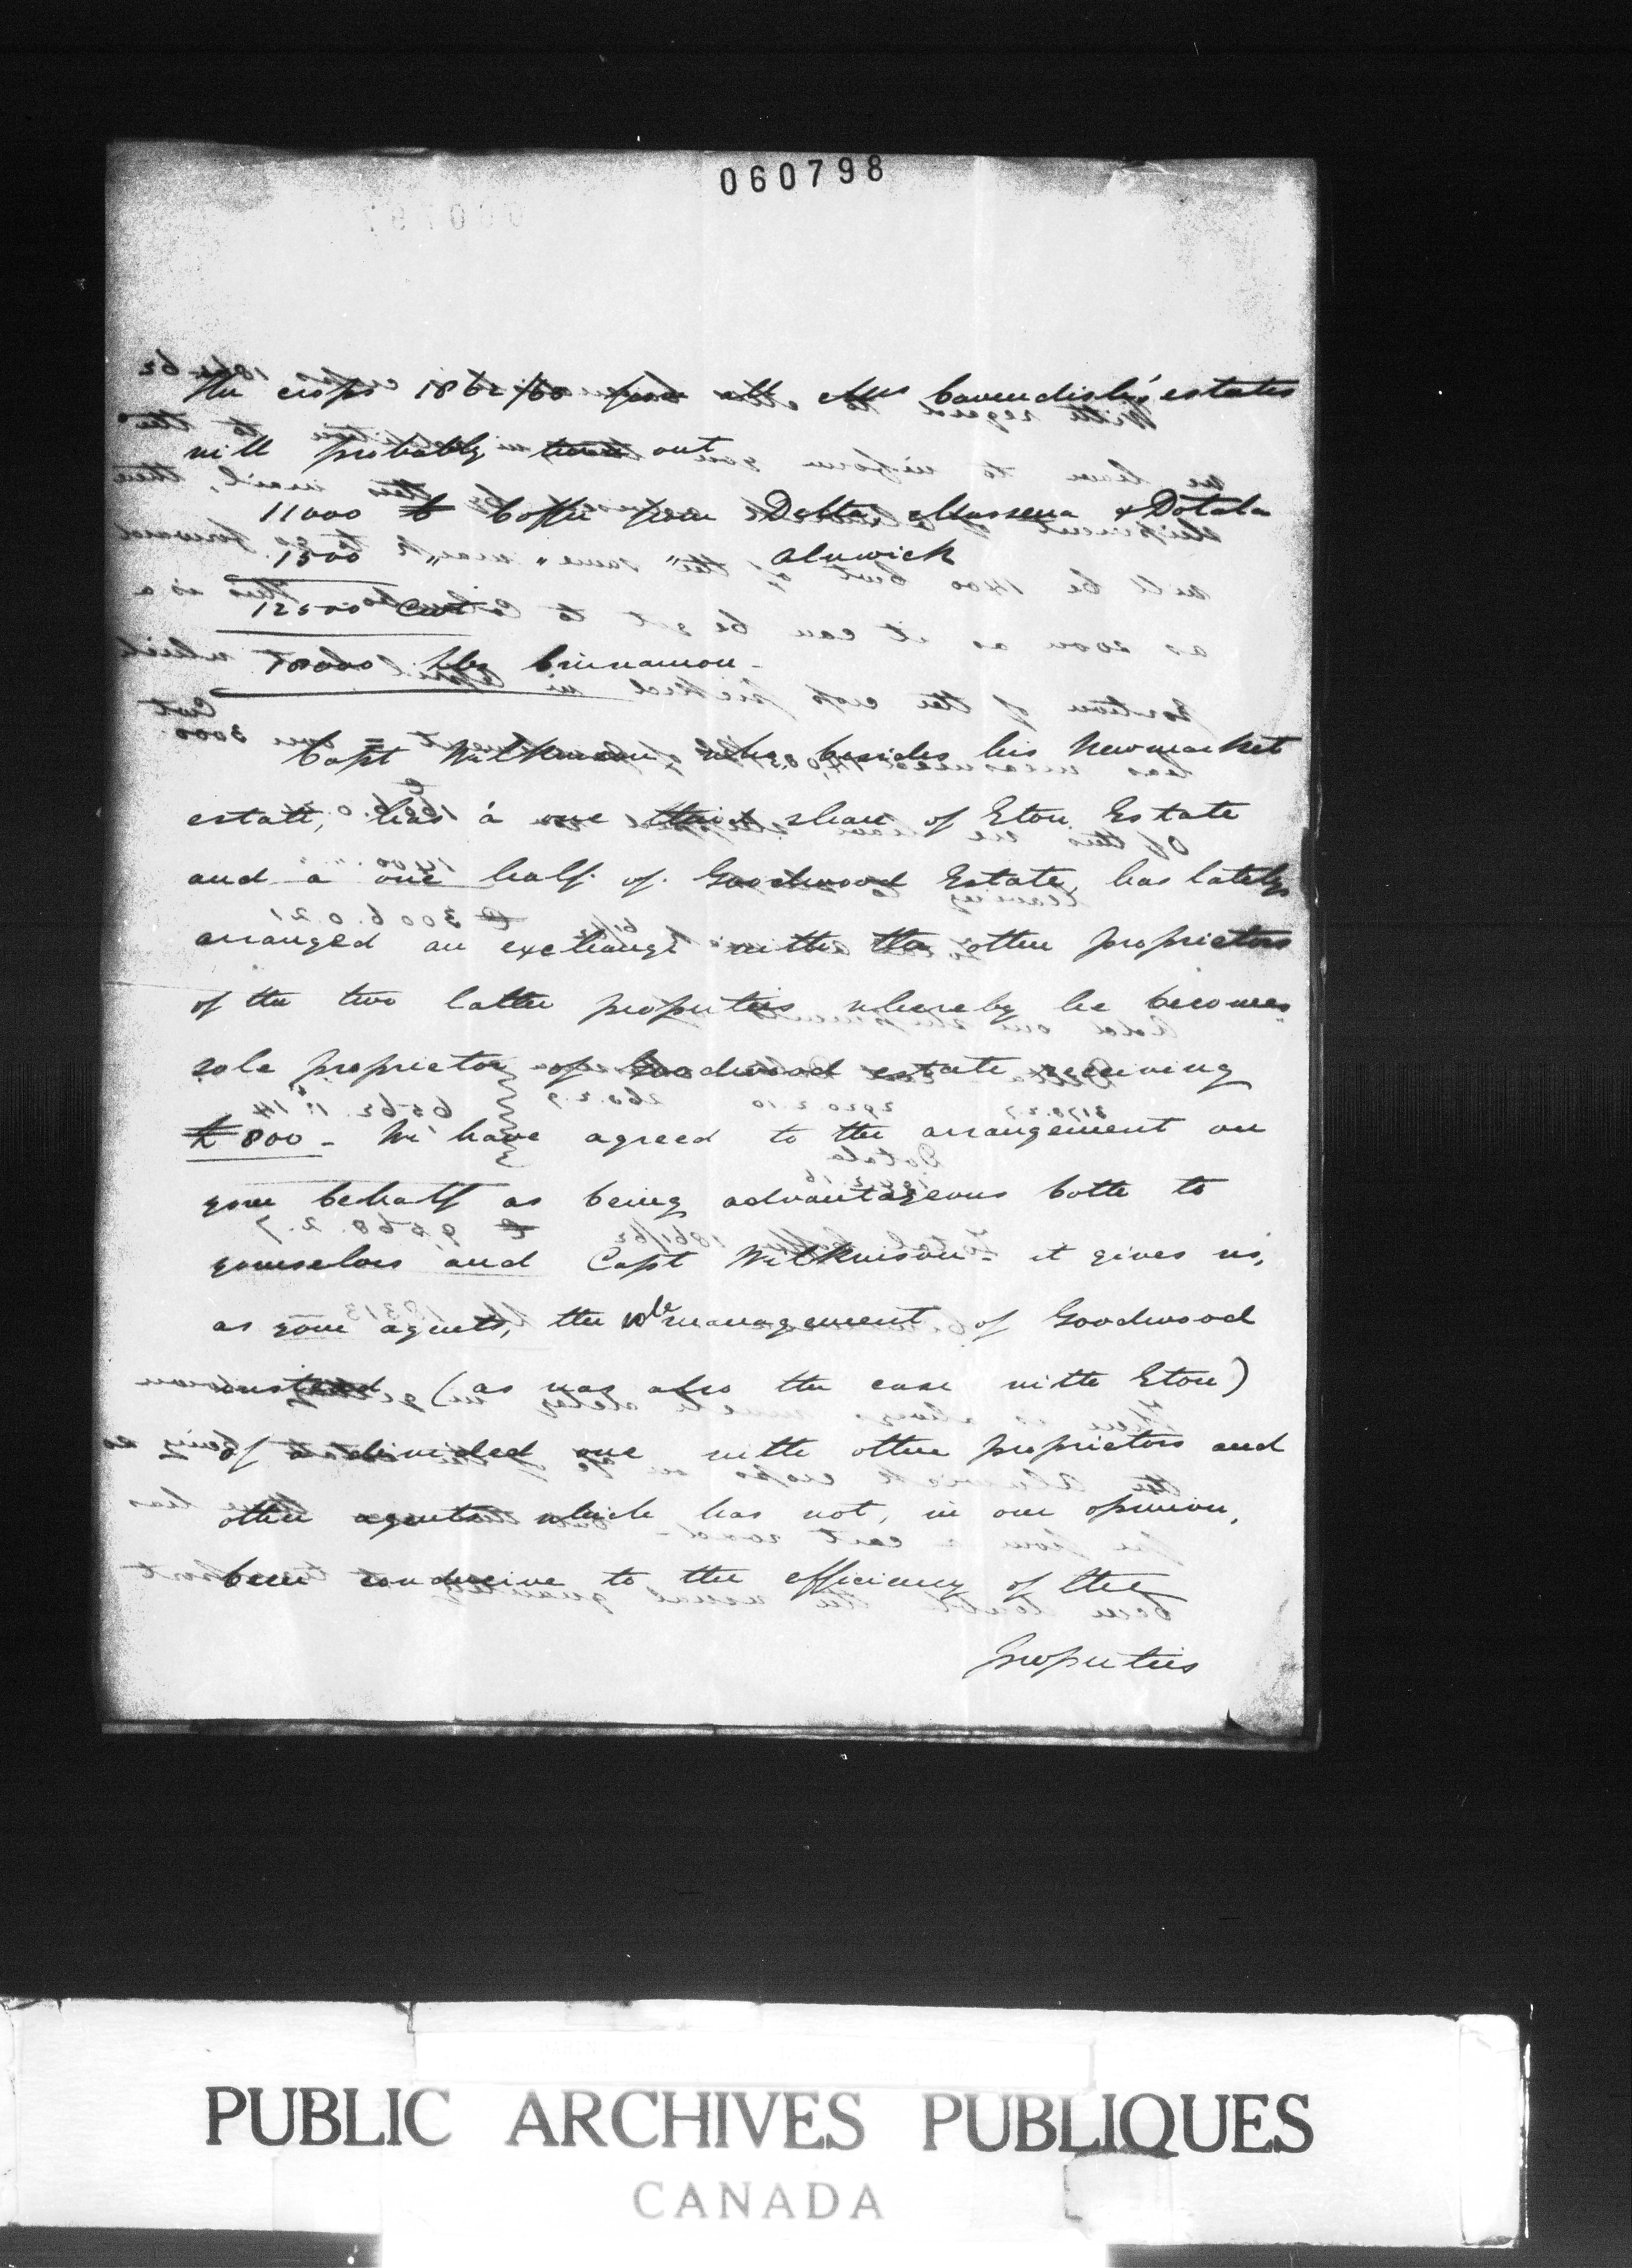 060798
The crops 1862/63 from all Mrs Cavendish's estates
will probably turn out
11000 Coffee from Delta, Massena & Dotala
1500 " " " Alnwick
12500 Cwt
lbs Cinnamon -
Capt Wilkinson who, besides his Newmarket
estate, has a one third share of Eton Estate
and a one half of Goodwood Estate, has lately
arranged an exchange with the other proprietors
of the two latter properties whereby he becomes
sole proprietor of Goodwood estate receiving
£ 800 - We have agreed to the arrangement on
your behalf as being advantageous both to
yourselves and Capt Wilkinson - it gives us,
as your agents, the sole management of Goodwood
instead (as was also the case with Eton)
of a divided one with other proprietors and
other agents which has not, in our opinion,
been conducive to the efficiency of the
properties
PUBLIC ARCHIVES PUBLIQUES
CANADA